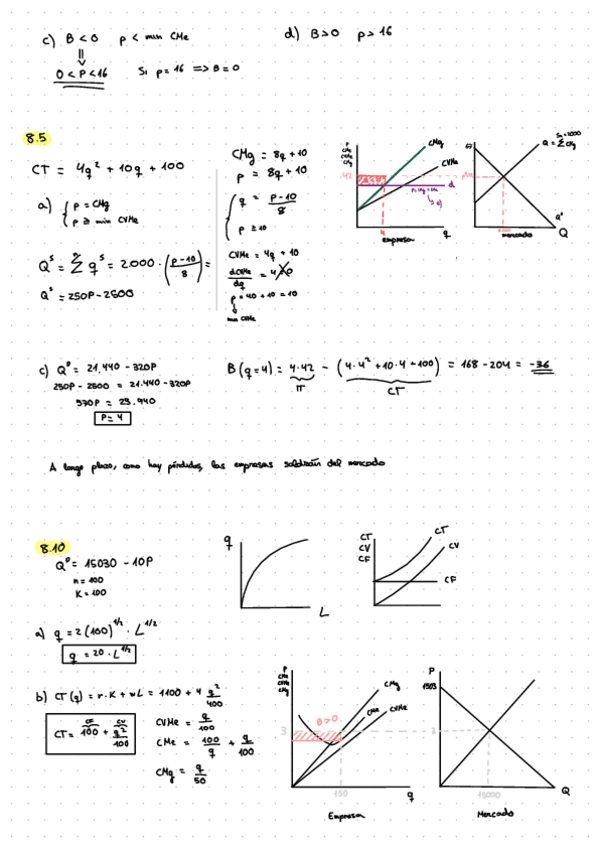 c) B < 0   p < min CMe
⇓
0 < P < 16   Si p = 16 ⟹ B = 0
d) B > 0   p > 16
8.5
CT = 4q² + 10q + 100
a) { p = CMg
p ≥ min CVMe
Qˢ = Σ qˢ = 2.000 · (p-10 / 8) =
Qˢ = 250P - 2500
CMg = 8q + 10
p = 8q + 10
{ q = p-10 / 8
p ≥ 10
CVMe = 4q + 10
dCVMe / dq = 4
p = 4·0 + 10 = 10
min CVMe
P
CMe
CVMe
CMg
CMg
CVMe
42
d
q
empresa
Q = Σ CMg
Qᴰ
Q
mercado
c) Qᴰ = 21.440 - 320P
250P - 2500 = 21.440 - 320P
570P = 23.940
P = 4
B (q=4) = 4·42 - (4·4² + 10·4 + 100) = 168 - 204 = -36
π   CT
A largo plazo, como hay pérdidas, las empresas saldrán del mercado
8.10
Qᴰ = 15030 - 10P
n = 100
K = 100
q
L
CT
CV
CF
CT
CV
CF
a) q = 2 (100)^1/2 · L^1/2
q = 20 · L^1/2
b) CT(q) = r·K + wL = 1·100 + 4 q² / 400
CT = 100 + q² / 100
CF   CV
CVMe = q / 100
CMe = 100 / q + q / 100
CMg = q / 50
P
CMe
CVMe
CMg
CMg
CMe
CVMe
B>0
3
150
q
Empresa
P
1503
3
15000
Q
Mercado